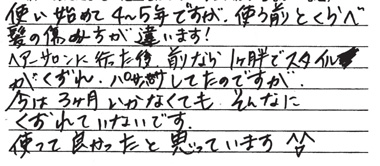 使い始めて4〜5年ですが、使う前とくらべ
髪の傷みちが違います!
ヘアーサロンに行った後、前なら1ヶ月半でスタイル
がくずれ、パサ付してたのですが、
今は3ヶ月いかなくても、そんなに
くずれていないです。
使って良かったと思っています ^^